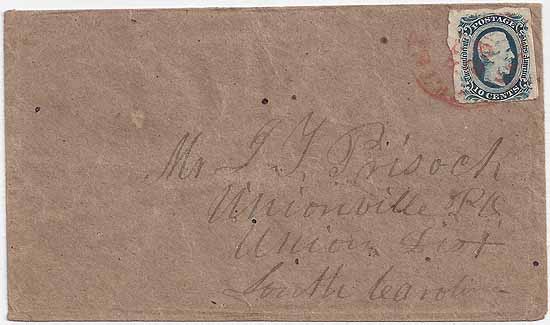 POSTAGE
The Confederate States of America
10 CENTS
Mr J. T. Prisock
Unionville P.O.
Union Dist
South Carolina